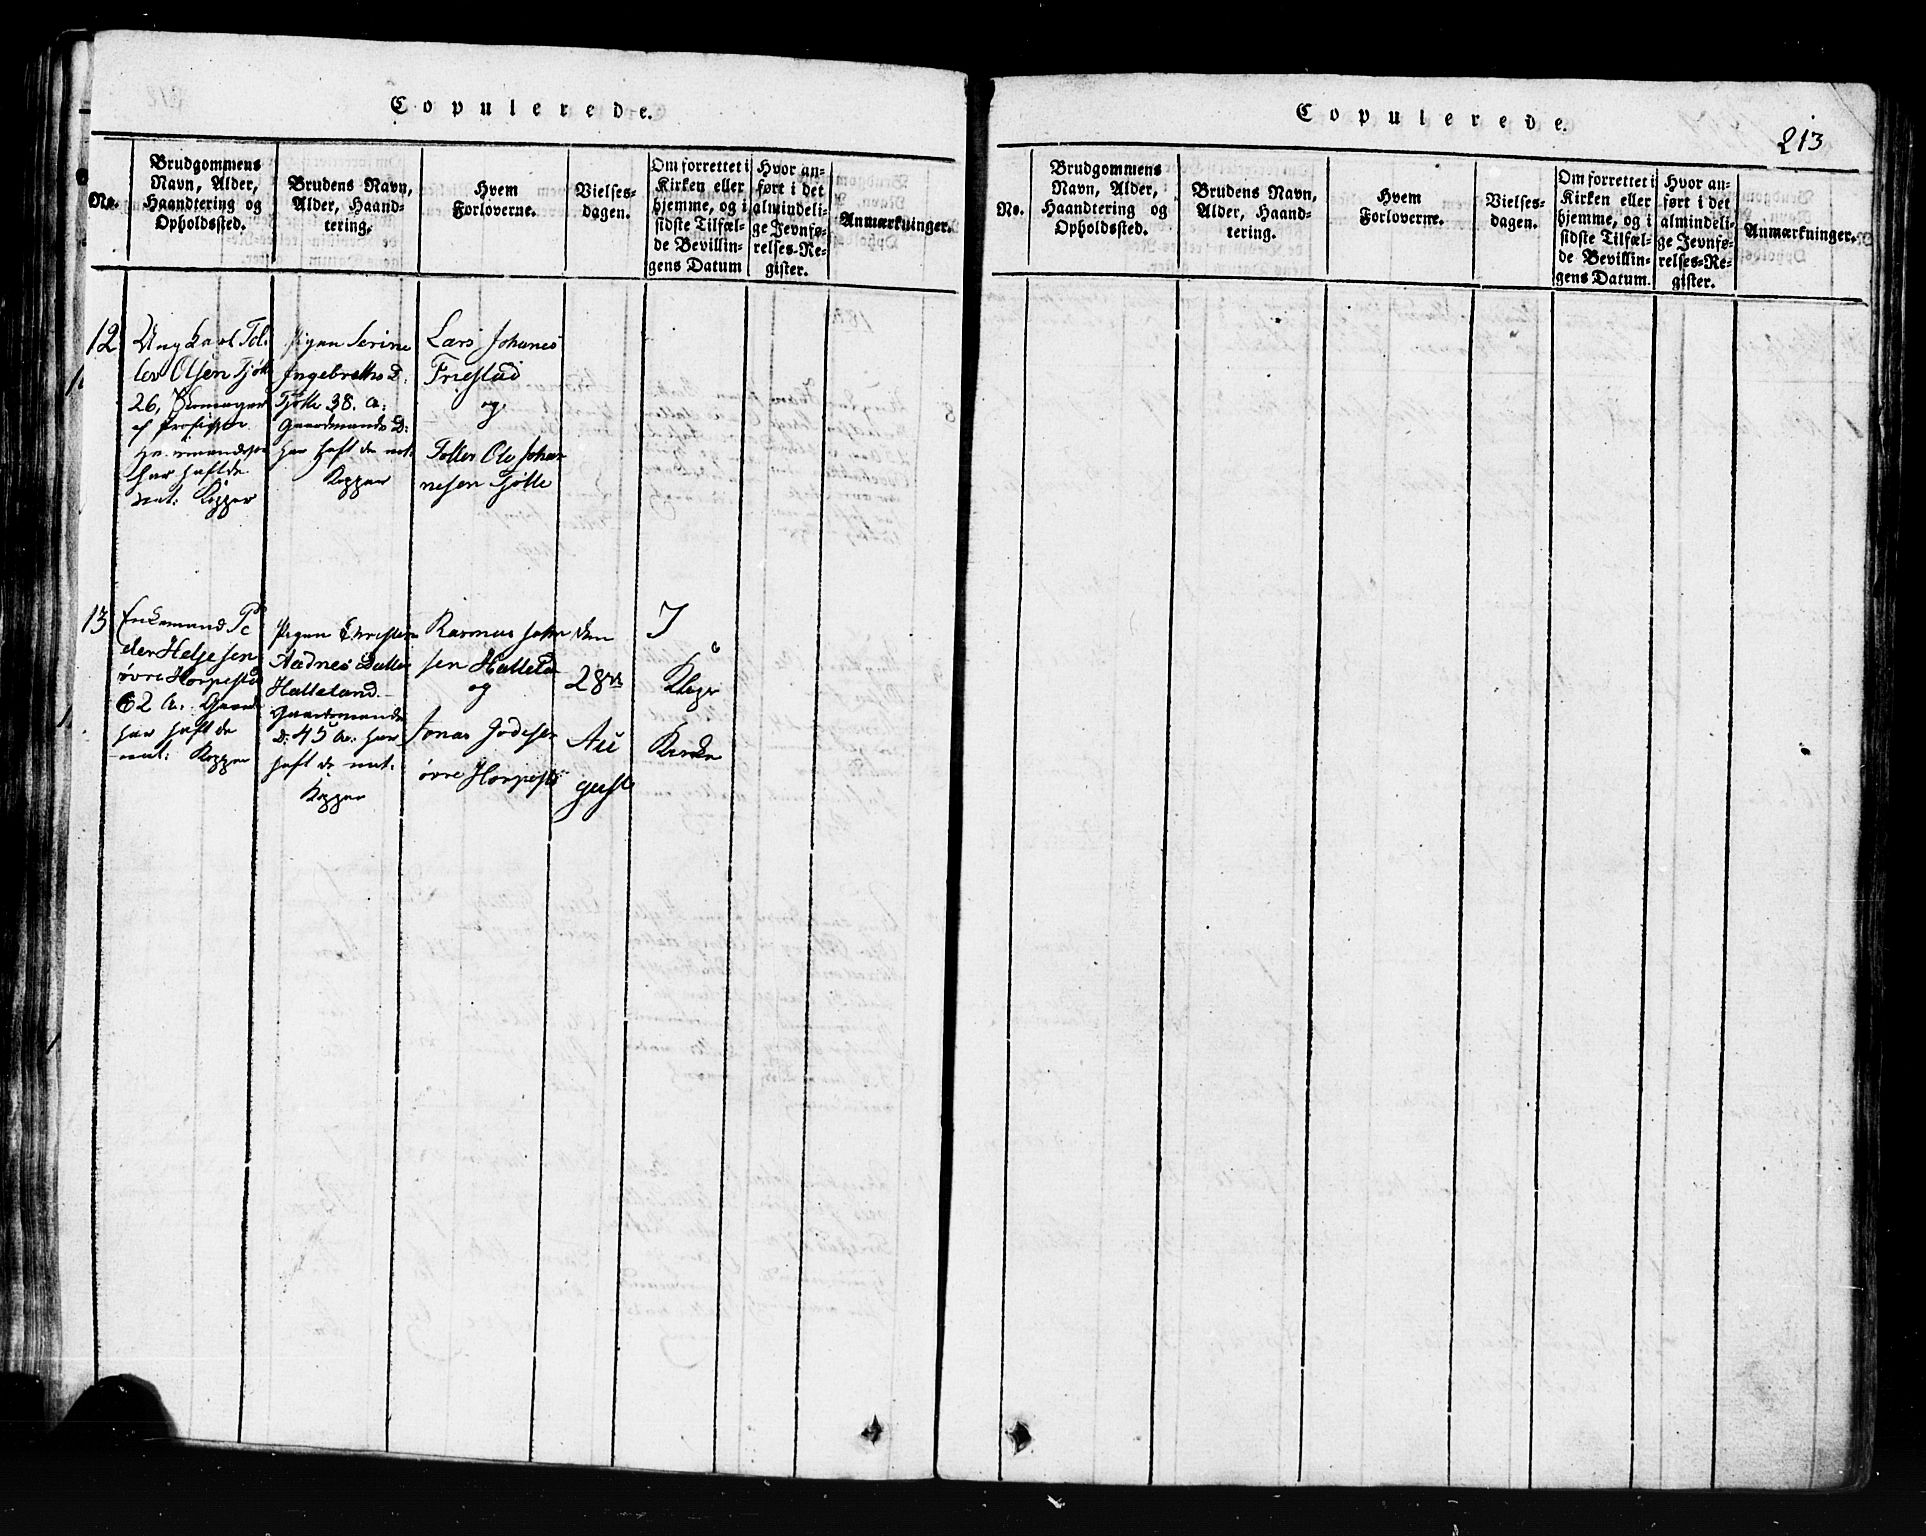 Copulerede.
No.
Brudgommens
Navn, Alder,
Haandtering og
Opholdssted.
Brudens Navn,
Alder, Haand-
tering.
Hvem
Forloverne.
Vielses-
dagen.
Om forrettet i
Kirken eller
hjemme, og i
sidste Tilfæl-
de Bevillin-
gens Datum
Hvor an-
ført i det
almindeli-
ge Jevnfø-
relses-Re-
gister.
Anmærkninger.
12
Ung Karl Tol
lev Olsen Tjøtt
26,
af Profission
har haft de
nat: Kopper
Pigen Serine
Ingebretts D.
Tjøtte 38. a:
Gaardmands D:
har haft de nat:
Kopper
Lars Johanes
Friestad
og
Tollev Ole Johan
nesen Tjøtte
13
Enkemand Pe
der Helgesen
øvre Horpestad
62 a. Gaard
har haft de
nat: Kopper
Pigen Christen
Aadnes Datter
Halleland
Gaardmands
D: 45 a. har
haft de nat.
Kopper
Rasmus John
sen Hallela
og
Jonas
øvre Horpest
den
28de
Au
guste
I
Klepp
Kirke
Copulerede.
213
No.
Brudgommens
Navn, Alder,
Haandtering og
Opholdssted.
Brudens Navn,
Alder, Haand-
tering.
Hvem
Forloverne.
Vielses-
dagen.
Om forrettet i
Kirken eller
hjemme, og i
sidste Tilfæl-
de Bevillin-
gens Datum.
Hvor an-
ført i det
almindeli-
ge Jevnfø-
relses-Re-
gister.
Anmærkninger.